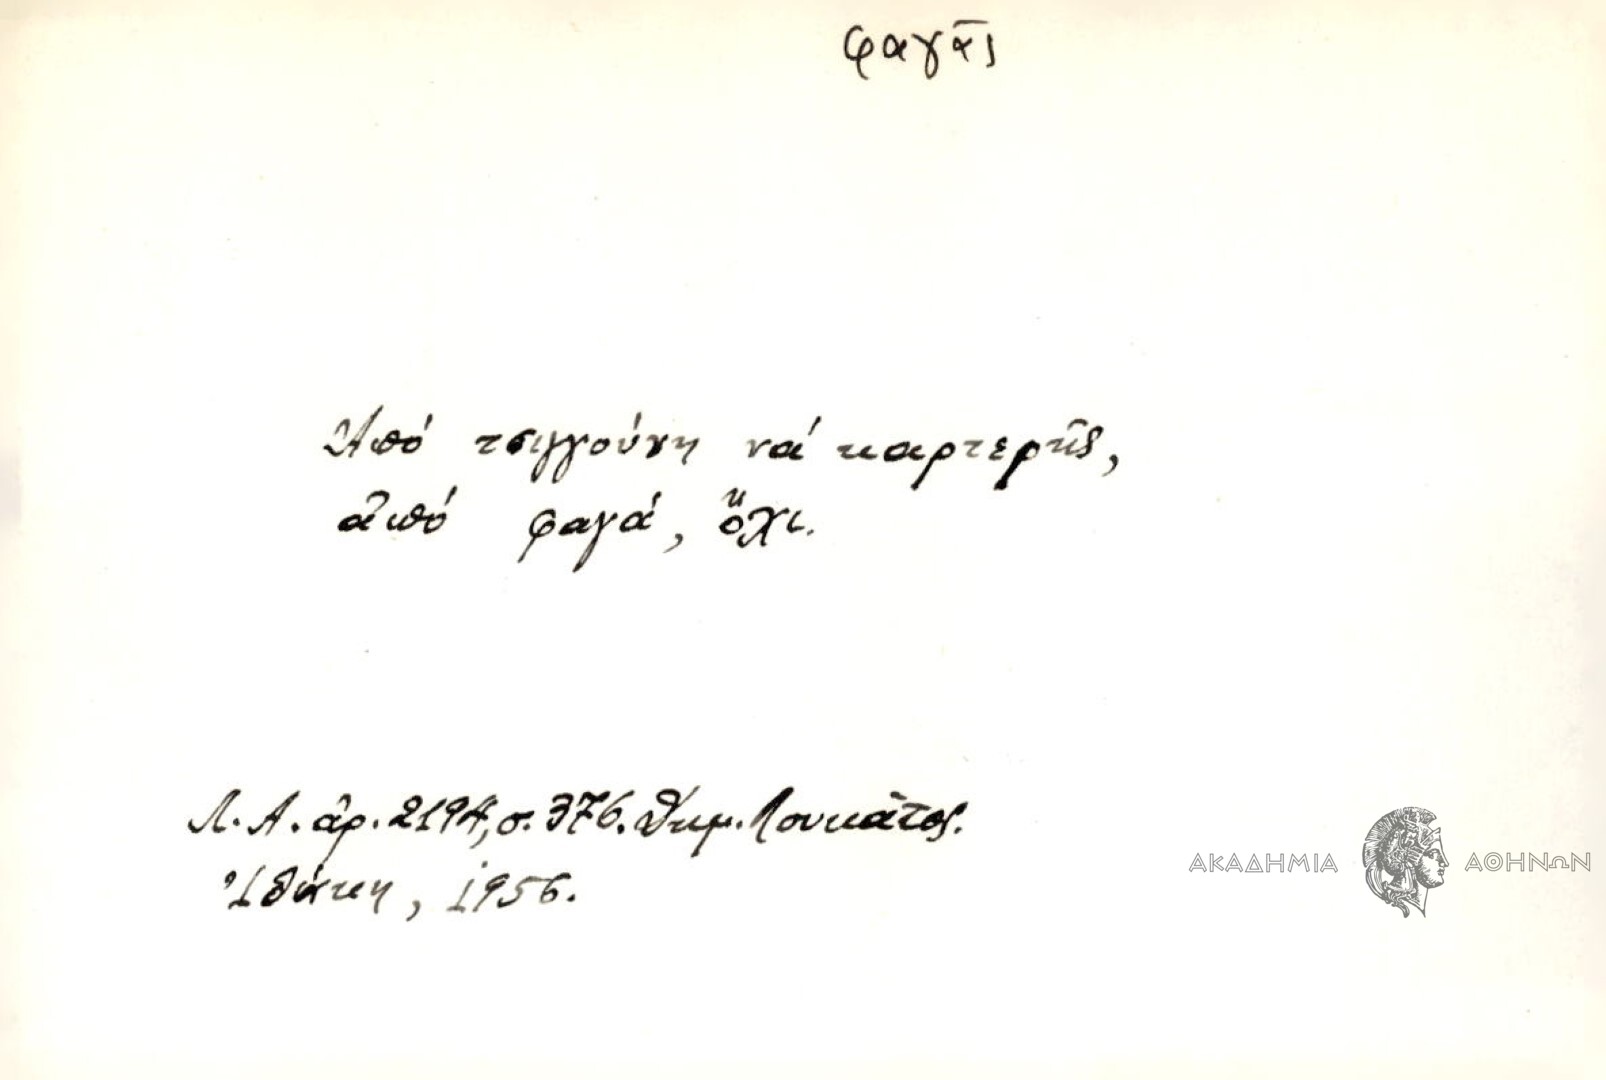 φαγᾶς
Ἀπό τσιγγούνη νά καρτερῆς,
ἀπό φαγά, ὄχι.
Λ.Α. ἀρ. 2194, σ. 376. Δημ. Λουκᾶτος.
Ἰθάκη, 1956.
ΑΚΑΔΗΜΙΑ ΑΘΗΝΩΝ